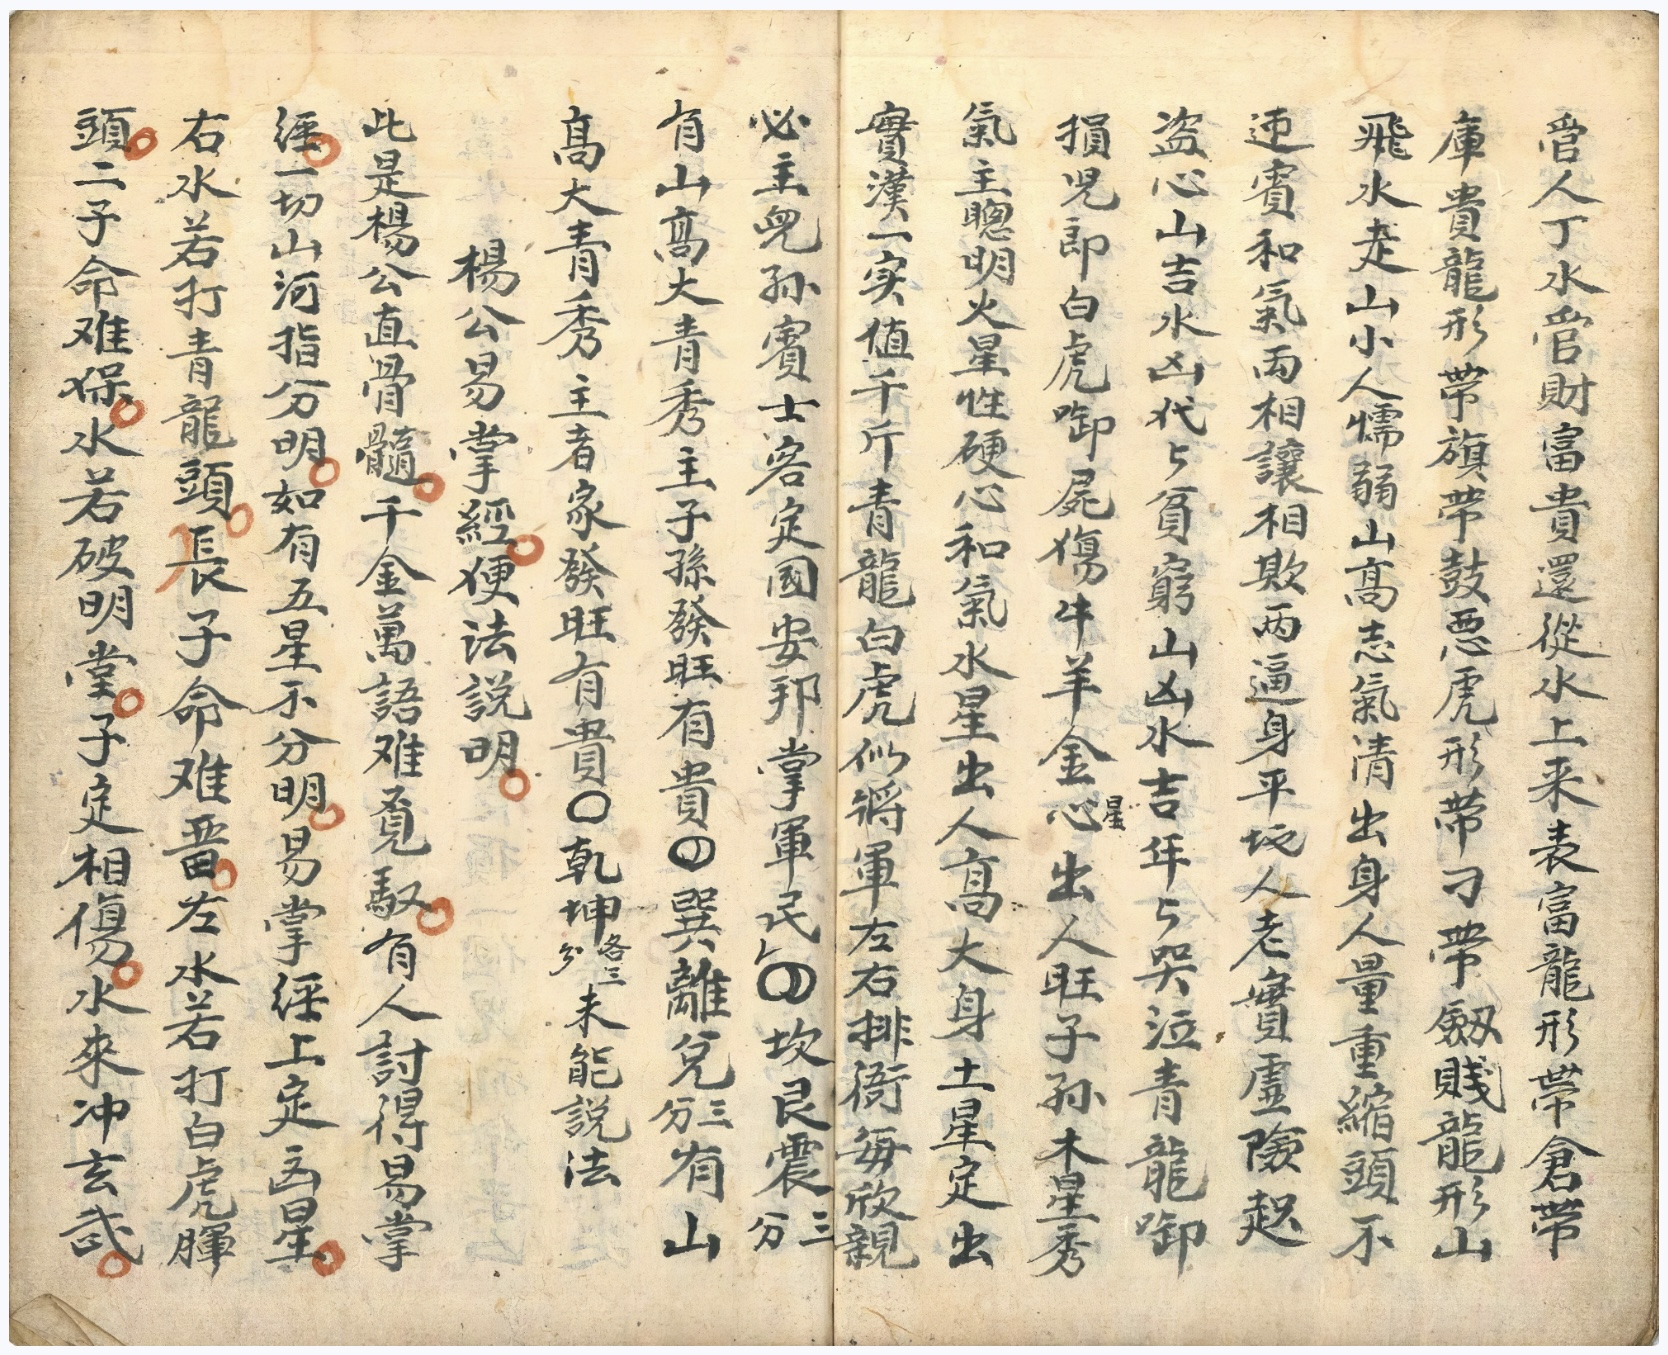 管人丁水管財富貴還從水上来表富龍形帶倉帶
庫貴龍形帶旗带鼓悪虎形帶刁帶劔賤龍形山
飛水走山小人懦弱山高志氣清出身人量重縮頭不
迊賓和氣两相讓相欺两逼身平坂人老實虛險起
盗心山吉水凶代ㄣ貧窮山凶水吉年ㄣ哭泣青龍啣
損児郎白虎啣屍傷牛羊金星心出人旺子孙木星秀
氣主聰明火星性硬心和氣水星出人高大身土星定出
實漢一实值千斤青龍白虎似將軍左右排衙每欣親
必主兒孙賓士客定國安邦掌軍民〇坎艮震三分
有山高大青秀主子孫發旺有貴〇巽離兌三分有山
高大青秀主者家發旺有貴〇乾坤各三分未能説法
楊公易掌經便法説明
此是楊公直骨髓千金萬語难覓馭有人討得易掌
経一切山河指分明如有五星不分明易掌経上定五星
右水若打青龍頭長子命难畱左水若打白虎腪
頭二子命难保水若破明堂子定相傷水來冲玄武